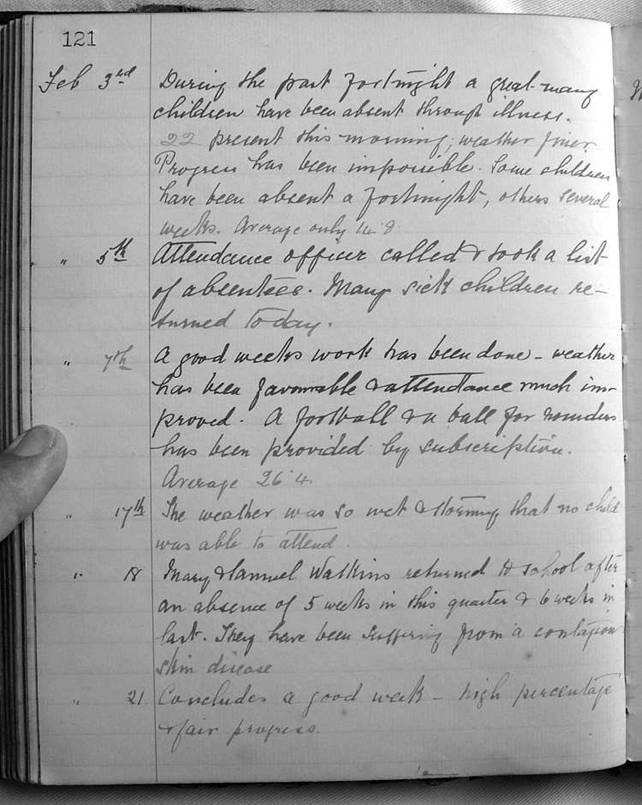 121
Feb 3rd During the past fortnight a great many
children have been absent through illness.
22 present this morning; weather finer
Progress has been impossible. Some children
have been absent a fortnight, others several
weeks. Average only
" 5th Attendance officer called & took a list
of absentees. Many sick children re-
turned today.
" 7th A good weeks work has been done - weather
has been favourable & attendance much im-
proved. A football & a ball for rounders
has been provided by subscription.
Average 26.4
" 17th The weather was so wet & stormy that no child
was able to attend.
" 18 Mary & Samuel Watkins returned to school after
an absence of 5 weeks in this quarter & 6 weeks in
last. They have been suffering from a contagious
skin disease
" 21 Concludes a good week - high percentage
& fair progress.